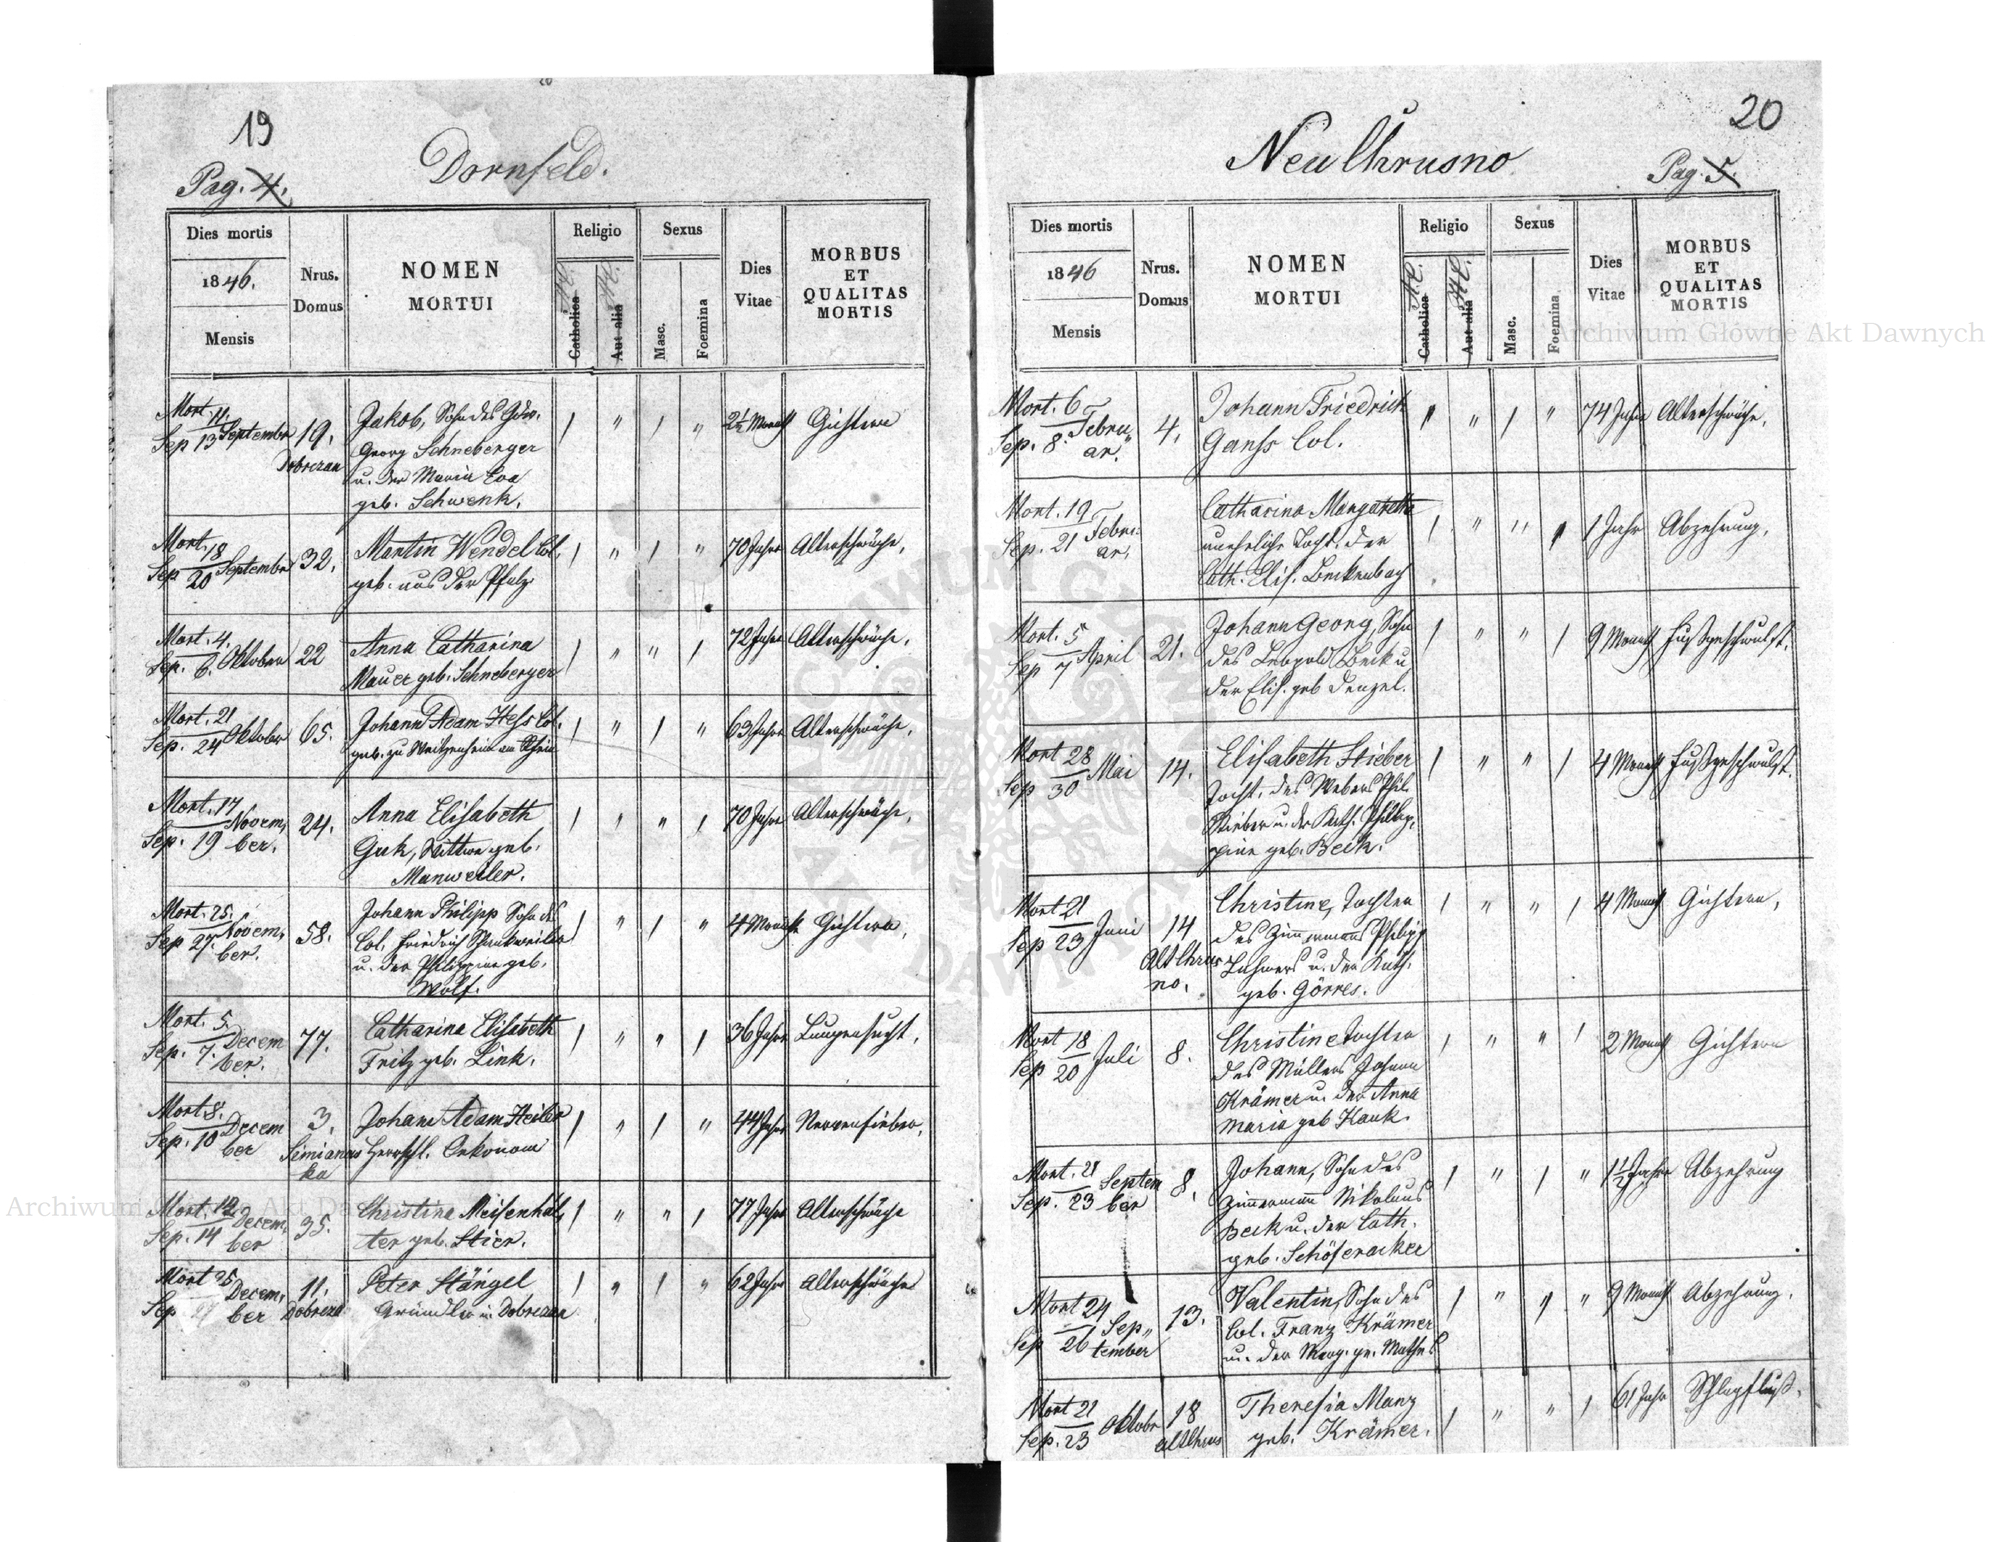 19
Pag. 4.
Dornfeld.
Dies mortis
1846.
Mensis
Nrus.
Domus
NOMEN
MORTUI
Religio
Catholica
Aut alia
Sexus
Masc.
Foemina
Dies
Vitae
MORBUS
ET
QUALITAS
MORTIS
Mort. 11.
Sep 13 September 19. Dobrzan
Jakob, Sohn des
Georg Schneberger
u. der Maria Eva
geb. Schwenk.
1 " 1 " 2½ Monath Gichtern
Mort. 18
Sep 20 September 32.
Martin Wendel Col.
geb. aus der Pfalz
1 " 1 " 70 Jahre Altersschwäche.
Mort. 4.
Sep. 6. Oktober 22
Anna Catharina
Mauer geb. Schneberger
1 " " 1 72 Jahre Altersschwäche.
Mort. 21
Sep. 24 Oktober 65.
Johann Adam Hess Col.
geb. zu am Rhein
1 " 1 " 63 Jahre Altersschwäche.
Mort. 17
Sep. 19 Novem,
ber. 24.
Anna Elisabeth
Guk, Wittwe geb.
Manweiler.
1 " " 1 70 Jahre Altersschwäche.
Mort. 25.
Sep 27. Novem,
ber. 58.
Johann Philipp Sohn des
Col. Friedrich Schankweiler
u. der Philippine geb.
Wolf.
1 " 1 " 4 Monath Gichtern.
Mort. 5.
Sep. 7. Decem
ber. 77.
Catharina Elisabeth
Fritz geb. Link.
1 " " 1 36 Jahre Lungensucht.
Mort 8.
Sep. 10 Decem
ber 3.
Simianow
ka
Johann Adam Heiler
Herrschl. Oekonom
1 " 1 " 44 Jahre Nervenfieber.
Mort. 12
Sep. 14 Decem,
ber 35.
Christina Meisenhäl,
ter geb. Stier.
1 " " 1 77 Jahre Altersschwäche
Mort 25
Sep 27 Decem,
ber 11.
Dobrzan
Peter Stängel
Gründler in Dobrzan
1 " 1 " 62 Jahre Altersschwäche
20
Neu Chrusno
Pag. 5.
Dies mortis
1846
Mensis
Nrus.
Domus
NOMEN
MORTUI
Religio
Catholica
Aut alia
Sexus
Masc.
Foemina
Dies
Vitae
MORBUS
ET
QUALITAS
MORTIS
Mort. 6
Sep. 8. Febru,
ar. 4.
Johann Friedrich
Ganss Col.
1 " 1 " 74 Jahre Altersschwäche.
Mort. 19
Sep. 21 Febru
ar.
Catharina Margaretha
unehrliche Tocht. der
Cath. Elis. Beckenbach
1 " " 1 1 Jahr Abzehrung.
Mort. 5
Sep 7 April 21.
Johann Georg, Sohn
des Leopold Beck u
der Elis. geb Denzel.
1 " " 1 9 Monath Fußgeschwulst.
Mort 28
Sep 30 Mai 14.
Elisabeth Stieber
Tocht. des Webers Phil.
Stieber u. der Kath. Philip,
pine geb. Beck.
1 " " 1 4 Monath Fußgeschwulst.
Mort 21
Sep 23 Juni 14
Alt Chrus
no.
Christine, Tochter
des Zimmermans Philipp
u. der Kath.
geb. Görres.
1 " " 1 4 Monath Gichtern,
Mort 18
Sep 20 Juli 8.
Christine Tochter
des Müllers Johann
Krämer u. der Anna
Maria geb Kauk.
1 " " 1 2 Monath Gichtern
Mort. 21
Sep. 23 Septem
ber 8.
Johann, Sohn des
Zimmermann Nikolaus
Beck u. der Cath.
geb. Schöferacker
1 " 1 " 1½ Jahre Abzehrung
Mort 24
Sep 26 Sep,,
tember 13.
Valentin, Sohn des
Col. Franz Krämer
u. der Marg. ge. Mathes
1 " 1 " 9 Monath Abzehrung.
Mort 21
Sep. 23 Oktobr 18
Alt Chrus
Theresia Manz
geb. Krämer.
1 " " 1 61 Jahr Schlagfluß.
Archiwum Główne Akt Dawnych
Archiwum Główne Akt Dawnych
ARCHIWUM GŁÓWNE AKT DAWNYCH